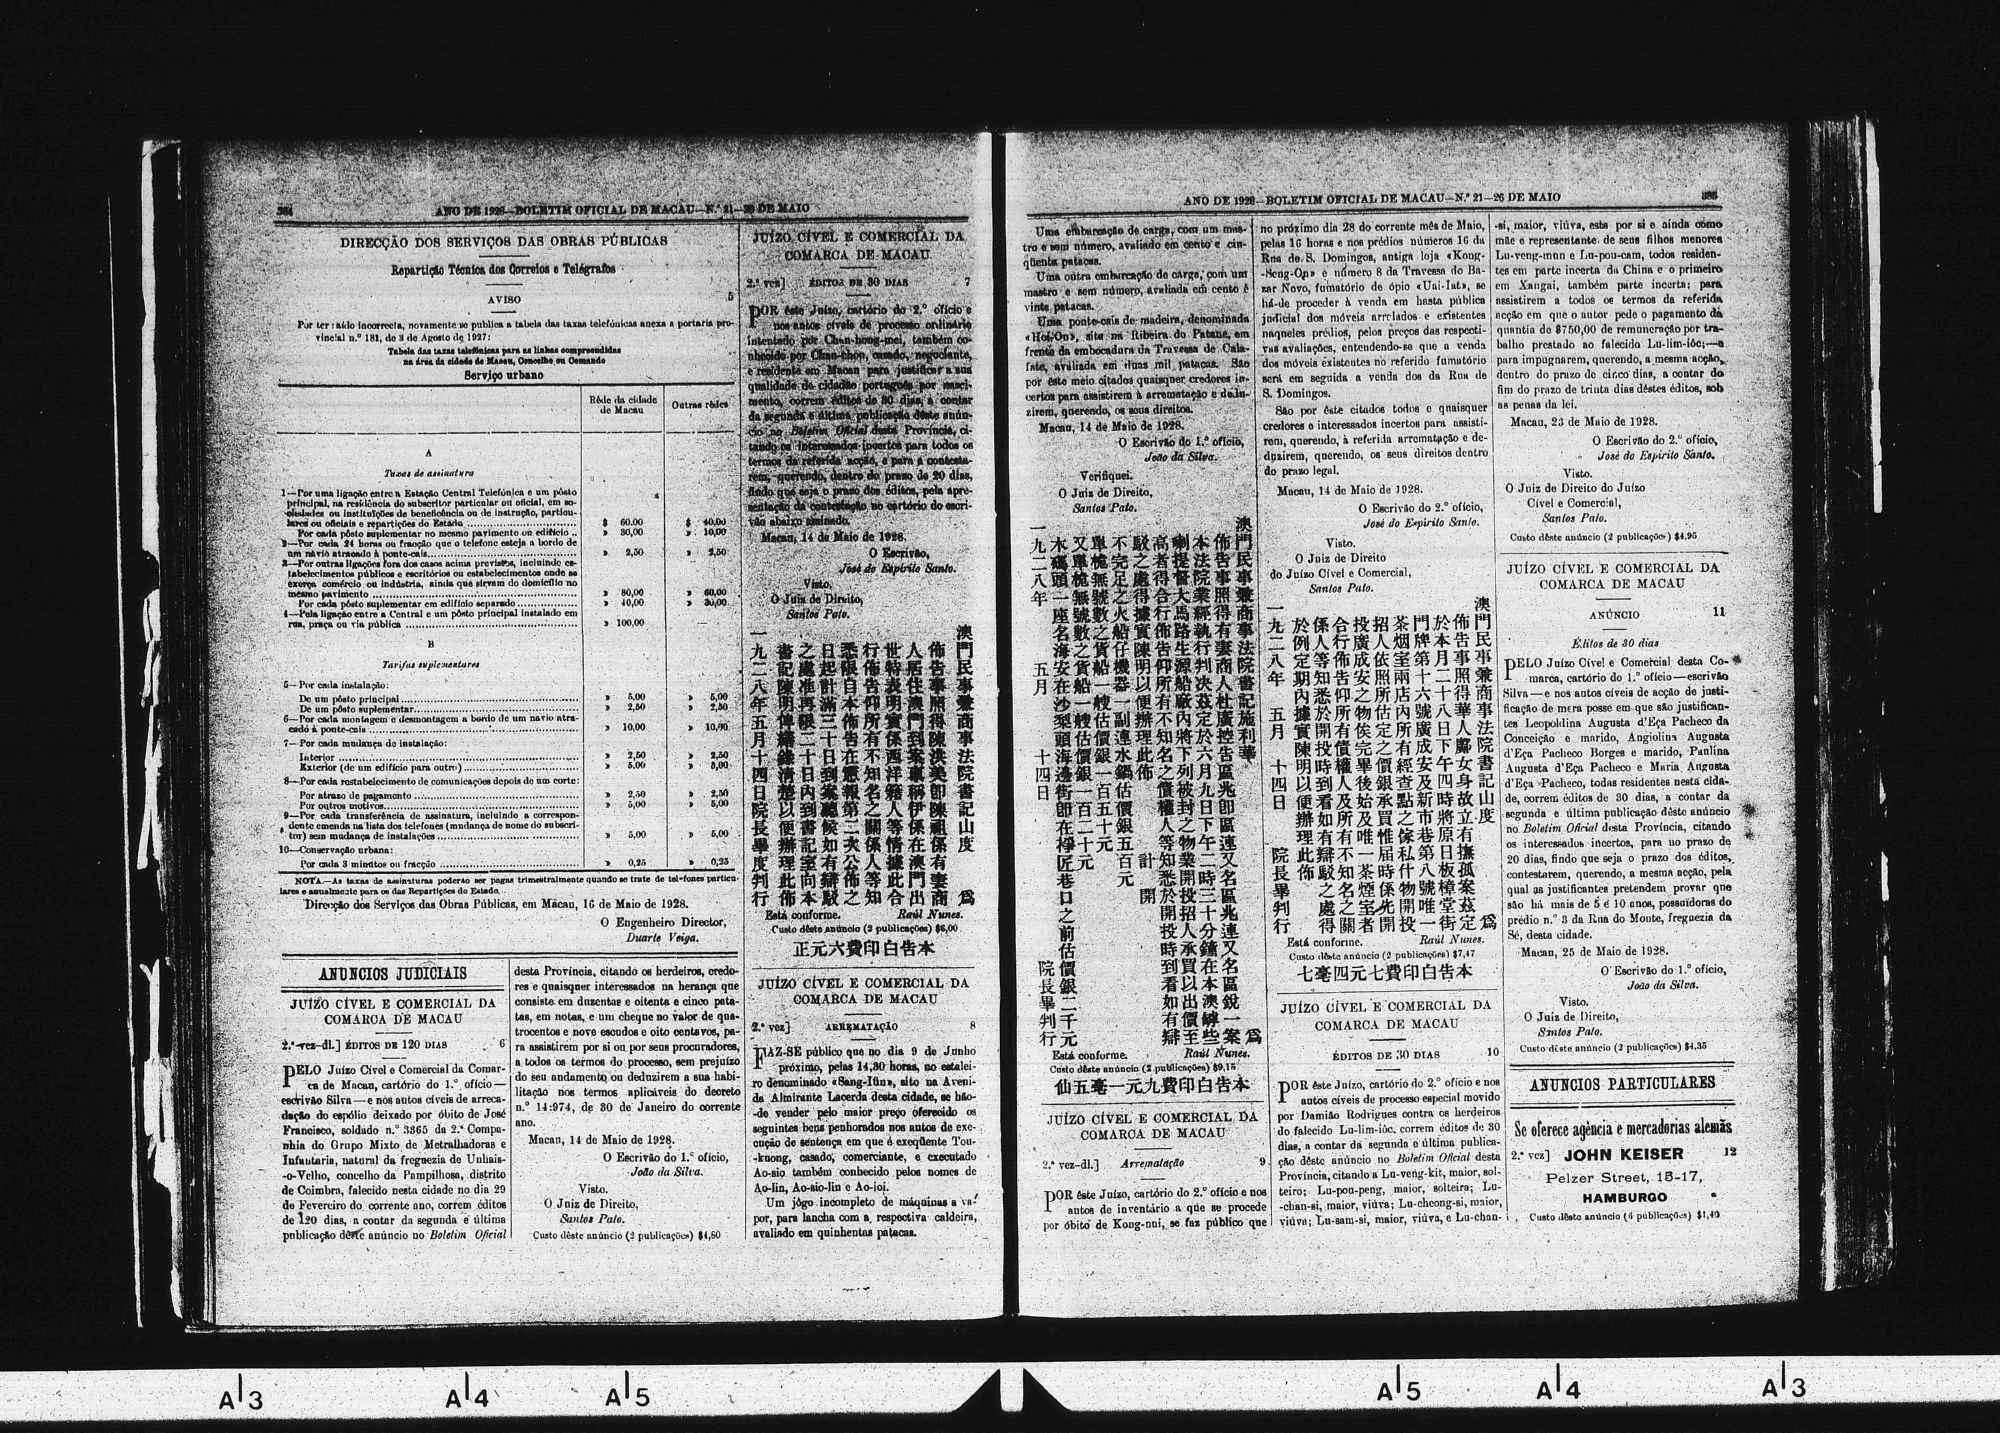 384
ANO DE 1928—BOLETIM OFICIAL DE MACAU—N.º 21—26 DE MAIO
DIRECÇÃO DOS SERVIÇOS DAS OBRAS PÚBLICAS
Repartição Técnica dos Correios e Telégrafos
AVISO 5
Por ter saído incorrecta, novamente se publica a tabela das taxas telefónicas anexa a portaria pro-
vincial n.º 181, de 3 de Agosto de 1927:
Tabela das taxas telefónicas para as linhas compreendidas
na área da cidade de Macau, Concelho ou Comando
Serviço urbano
Rêde da cidade de Macau
Outras rêdes
A
Taxas de assinatura
1—Por uma ligação entre a Estação Central Telefónica e um pôsto
principal, na residência do subscritor particular ou oficial, em so-
ciedades ou instituïções de beneficência ou de instrução, particu-
lares ou oficiais e repartições do Estado $ 60,00 $ 40,00
Por cada pôsto suplementar no mesmo pavimento ou edifício » 30,00 » 10,00
2—Por cada 24 horas ou fracção que o telefone esteja a bordo de
um navio atracado à ponte-cais » 2,50 » 2,50
3—Por outras ligações fora dos casos acima previstos, incluindo es-
tabelecimentos públicos e escritórios ou estabelecimentos onde se
exerça comércio ou indústria, ainda que sirvam do domicílio no
mesmo pavimento » 80,00 » 60,00
Por cada pôsto suplementar em edifício separado » 40,00 » 30,00
4—Pela ligação entre a Central e um pôsto principal instalado em
rua, praça ou via pública » 100,00 —
B
Tarifas suplementares
5—Por cada instalação:
De um pôsto principal » 5,00 » 5,00
De um pôsto suplementar » 2,50 » 2,50
6—Por cada montagem e desmontagem a bordo de um navio atra-
cado à ponte-cais » 10,00 » 10,00
7—Por cada mudança de instalação:
Interior » 2,50 » 2,50
Exterior (de um edifício para outro) » 5,00 » 5,00
8—Por cada restabelecimento de comunicações depois de um corte:
Por atrazo de pagamento » 2,50 » 2,50
Por outros motivos » 5,00 » 5,00
9—Por cada transferência de assinatura, incluindo a correspon-
dente emenda na lista dos telefones (mudança de nome do subscri-
tor) sem mudança de instalações » 5,00 » 5,00
10—Conservação urbana:
Por cada 3 minutos ou fracção » 0,25 » 0,25
NOTA.—As taxas de assinaturas poderão ser pagas trimestralmente quando se trate de telefones particu-
lares e anualmente para os das Repartições do Estado.
Direcção dos Serviços das Obras Públicas, em Macau, 16 de Maio de 1928.
O Engenheiro Director,
Duarte Veiga.
ANÚNCIOS JUDICIAIS
JUÍZO CÍVEL E COMERCIAL DA
COMARCA DE MACAU
2.ª vez-dl.] ÉDITOS DE 120 DIAS 6
PELO Juízo Cível e Comercial da Comar-
ca de Macau, cartório do 1.º ofício—
escrivão Silva—e nos autos cíveis de arreca-
dação do espólio deixado por óbito de José
Francisco, soldado n.º 3365 da 2.ª Compa-
nhia do Grupo Mixto de Metralhadoras e
Infantaria, natural da freguezia de Unhais-
-o-Velho, concelho da Pampilhosa, distrito
de Coimbra, falecido nesta cidade no dia 29
de Fevereiro do corrente ano, correm éditos
de 120 dias, a contar da segunda e última
publicação dêste anúncio no Boletim Oficial
desta Província, citando os herdeiros, credo-
res e quaisquer interessados na herança que
consiste em duzentas e oitenta e cinco pata-
tas, em notas, e um cheque no valor de qua-
trocentos e nove escudos e oito centavos, pa-
ra assistirem por si ou por seus procuradores,
a todos os termos do processo, sem prejuízo
do seu andamento ou deduzirem a sua habi-
litação nos termos aplicáveis do decreto
n.º 14:974, de 30 de Janeiro do corrente
ano.
Macau, 14 de Maio de 1928.
O Escrivão do 1.º ofício,
João da Silva.
Visto.
O Juiz de Direito,
Santos Pato.
Custo dêste anúncio (2 publicações) $4,80
JUÍZO CÍVEL E COMERCIAL DA
COMARCA DE MACAU
2.ª vez] ÉDITOS DE 30 DIAS 7
POR êste Juízo, cartório do 2.º ofício e
nos autos cíveis de processo ordinário
intentado por Chan-hong-mei, também co-
nhecido por Chan-chon, casado, negociante,
e residente em Macau para justificar a sua
qualidade de cidadão português por nasci-
mento, correm éditos de 30 dias, a contar
da segunda e última publicação dêste anún-
cio no Boletim Oficial desta Província, ci-
tando os interessados incertos para todos os
termos da referida acção, e para a contesta-
rem, querendo, dentro do prazo de 20 dias,
findo que seja o prazo dos éditos, pela apre-
sentação da contestação no cartório do escri-
vão abaixo assinado.
Macau, 14 de Maio de 1928.
O Escrivão,
José do Espírito Santo.
Visto.
O Juiz de Direito,
Santos Pato.
澳門民事兼商事法院書記山度 爲
佈告事照得陳洪美卽陳祖係有妻商
人居住澳門到案稟稱伊係在澳門出
世特表明實係西洋籍人等情據此合
行佈告仰所有不知名之關係人等知
悉限自本佈告在憲報第二次公佈之
日起計滿三十日到案聽候如有辯駁
之處准再限二十日內到書記室向本
書記陳明俾繕錄清楚以便辦理此佈
一九二八年五月十四日院長畢度判行
Está conforme. Raúl Nunes.
Custo dêste anúncio (2 publicações) $6,00
正元六費印白告本
JUÍZO CÍVEL E COMERCIAL DA
COMARCA DE MACAU
2.ª vez] ARREMATAÇÃO 8
FAZ-SE público que no dia 9 de Junho
próximo, pelas 14,30 horas, no estalei-
ro denominado «Sang-Iün», sito na Aveni-
da Almirante Lacerda desta cidade, se hão-
-de vender pelo maior preço oferecido os
seguintes bens penhorados nos autos de exe-
cução de sentença em que é exeqüente Tou-
-kuong, casado, comerciante, e executado
Ao-sio também conhecido pelos nomes de
Ao-lin, Ao-sio-lin e Ao-joi.
Um jôgo incompleto de máquinas a va-
por, para lancha com a respectiva caldeira,
avaliado em quinhentas patacas.
ANO DE 1928—BOLETIM OFICIAL DE MACAU—N.º 21—26 DE MAIO
385
Uma embarcação de carga, com um mas-
tro e sem número, avaliado em cento e cin-
qüenta patacas.
Uma outra embarcação de carga, com um
mastro e sem número, avaliada em cento e
vinte patacas.
Uma ponte-cais de madeira, denominada
«Hoi-On», sita na Ribeira do Patane, em
frente da embocadura da Travessa do Cala-
fate, avaliada em duas mil patacas. São
por êste meio citados quaisquer credores in-
certos para assistirem à arrematação e dedu-
zirem, querendo, os seus direitos.
Macau, 14 de Maio de 1928.
O Escrivão do 1.º ofício,
João da Silva.
Verifiquei.
O Juiz de Direito,
Santos Pato.
澳門民事兼商事法院書記施利華 爲
佈告事照得有妻商人杜廣控告區兆卽區連又名區兆連又名區銳一案
本法院業經執行判決茲定於六月九日下午二時三十分鐘在本澳罅些
喇提督大馬路生源船廠內將下列被封之物業開投招人承買以出價至
高者得合行佈告仰所有不知名之債權人等知悉於開投時到看如有辯
駁之處得據實陳明以便辦理此佈 計開
不完足之火船仔機器一副連水鍋估價銀五百元
單桅無號數之貨船一艘估價銀一百五十元
又單桅無號數之貨船一艘估價銀一百二十元
木碼頭一座名海安在沙梨頭海邊街卽在桴匠巷口之前估價銀二千元
一九二八年 五月 十四日 院長畢判行
Está conforme. Raúl Nunes.
Custo dêste anúncio (2 publicações) $9,15
仙五毫一元九費印白告本
JUÍZO CÍVEL E COMERCIAL DA
COMARCA DE MACAU
2.ª vez-dl.] Arrematação 9
POR êste Juízo, cartório do 2.º ofício e nos
autos de inventário a que se procede
por óbito de Kong-nui, se faz público que
no próximo dia 28 do corrente mês de Maio,
pelas 16 horas e nos prédios números 16 da
Rua de S. Domingos, antiga loja «Kong-
-Seng-On» e número 8 da Travessa do Ba-
zar Novo, fumatório de ópio «Uai-Iat», se
há-de proceder à venda em hasta pública
judicial dos móveis arrolados e existentes
naqueles prédios, pelos preços das respecti-
vas avaliações, entendendo-se que a venda
dos móveis existentes no referido fumatório
será em seguida a venda dos da Rua de
S. Domingos.
São por êste citados todos e quaisquer
credores e interessados incertos para assisti-
rem, querendo, à referida arrematação e de-
duzirem, querendo, os seus direitos dentro
do prazo legal.
Macau, 14 de Maio de 1928.
O Escrivão do 2.º ofício,
José do Espírito Santo.
Visto.
O Juiz de Direito
do Juízo Cível e Comercial,
Santos Pato.
澳門民事兼商事法院書記山度 爲
佈告事照得華人鄺女身故立有撫孤案茲定
於本月二十八日下午四時將原日板樟堂街
門牌第十六號廣成安及新市巷第八號唯一
茶烟室兩店內所有經查點之傢私什物開投
招人依照所估定之價銀承買惟屆時係先開
投廣成安之物俟完畢後始及唯一茶煙室者
合行佈告仰所有債權人及所有不知名之關
係人等知悉於開投時到看如有辯駁之處得
於例定期內據實陳明以便辦理此佈
一九二八年 五月 十四日 院長畢判行
Está conforme. Raúl Nunes.
Custo dêste anúncio (2 publicações) $7,47
七毫四元七費印白告本
JUÍZO CÍVEL E COMERCIAL DA
COMARCA DE MACAU
ÉDITOS DE 30 DIAS 10
POR êste Juízo, cartório do 2.º ofício e nos
autos cíveis de processo especial movido
por Damião Rodrigues contra os herdeiros
do falecido Lu-lim-ióc, correm éditos de 30
dias, a contar da segunda e última publica-
ção dêste anúncio no Boletim Oficial desta
Província, citando a Lu-veng-kit, maior, sol-
teiro; Lu-pou-peng, maior, solteira; Lu-
-chan-si, maior, viúva; Lu-cheong-si, maior,
viúva; Lu-sam-si, maior, viúva, e Lu-chan-
-si, maior, viúva, esta por si e ainda como
mãe e representante de seus filhos menores
Lu-veng-mun e Lu-pou-cam, todos residen-
tes em parte incerta da China e o primeiro
em Xangai, também parte incerta; para
assistirem a todos os termos da referida
acção em que o autor pede o pagamento da
quantia de $750,00 de remuneração por tra-
balho prestado ao falecido Lu-lim-ióc;—e
para impugnarem, querendo, a mesma acção,
dentro do prazo de cinco dias, a contar do
fim do prazo de trinta dias dêstes éditos, sob
as penas da lei.
Macau, 23 de Maio de 1928.
O Escrivão do 2.º ofício,
José do Espírito Santo.
Visto.
O Juiz de Direito do Juízo
Cível e Comercial,
Santos Pato.
Custo dêste anúncio (2 publicações) $4,95
JUÍZO CÍVEL E COMERCIAL DA
COMARCA DE MACAU
ANÚNCIO 11
Éditos de 30 dias
PELO Juízo Cível e Comercial desta Co-
marca, cartório do 1.º ofício—escrivão
Silva—e nos autos cíveis de acção de justi-
ficação de mera posse em que são justifican-
tes Leopoldina Augusta d'Eça Pacheco da
Conceição e marido, Angiolina Augusta
d'Eça Pacheco Borges e marido, Paulina
Augusta d'Eça Pacheco e Maria Augusta
d'Eça Pacheco, todas residentes nesta cida-
de, correm éditos de 30 dias, a contar da
segunda e última publicação dêste anúncio
no Boletim Oficial desta Província, citando
os interessados incertos, para no prazo de
20 dias, findo que seja o prazo dos éditos,
contestarem, querendo, a mesma acção, pela
qual as justificantes pretendem provar que
são há mais de 5 e 10 anos, possuidoras do
prédio n.º 3 da Rua do Monte, freguezia da
Sé, desta cidade.
Macau, 25 de Maio de 1928.
O Escrivão do 1.º ofício,
João da Silva.
Visto.
O Juiz de Direito,
Santos Pato.
Custo dêste anúncio (2 publicações) $4,35
ANÚNCIOS PARTICULARES
Se oferece agência e mercadorias alemãs
2.ª vez] JOHN KEISER 12
Pelzer Street, 15-17,
HAMBURGO
Custo dêste anúncio (6 publicações) $1,40
A3 A4 A5 A5 A4 A3